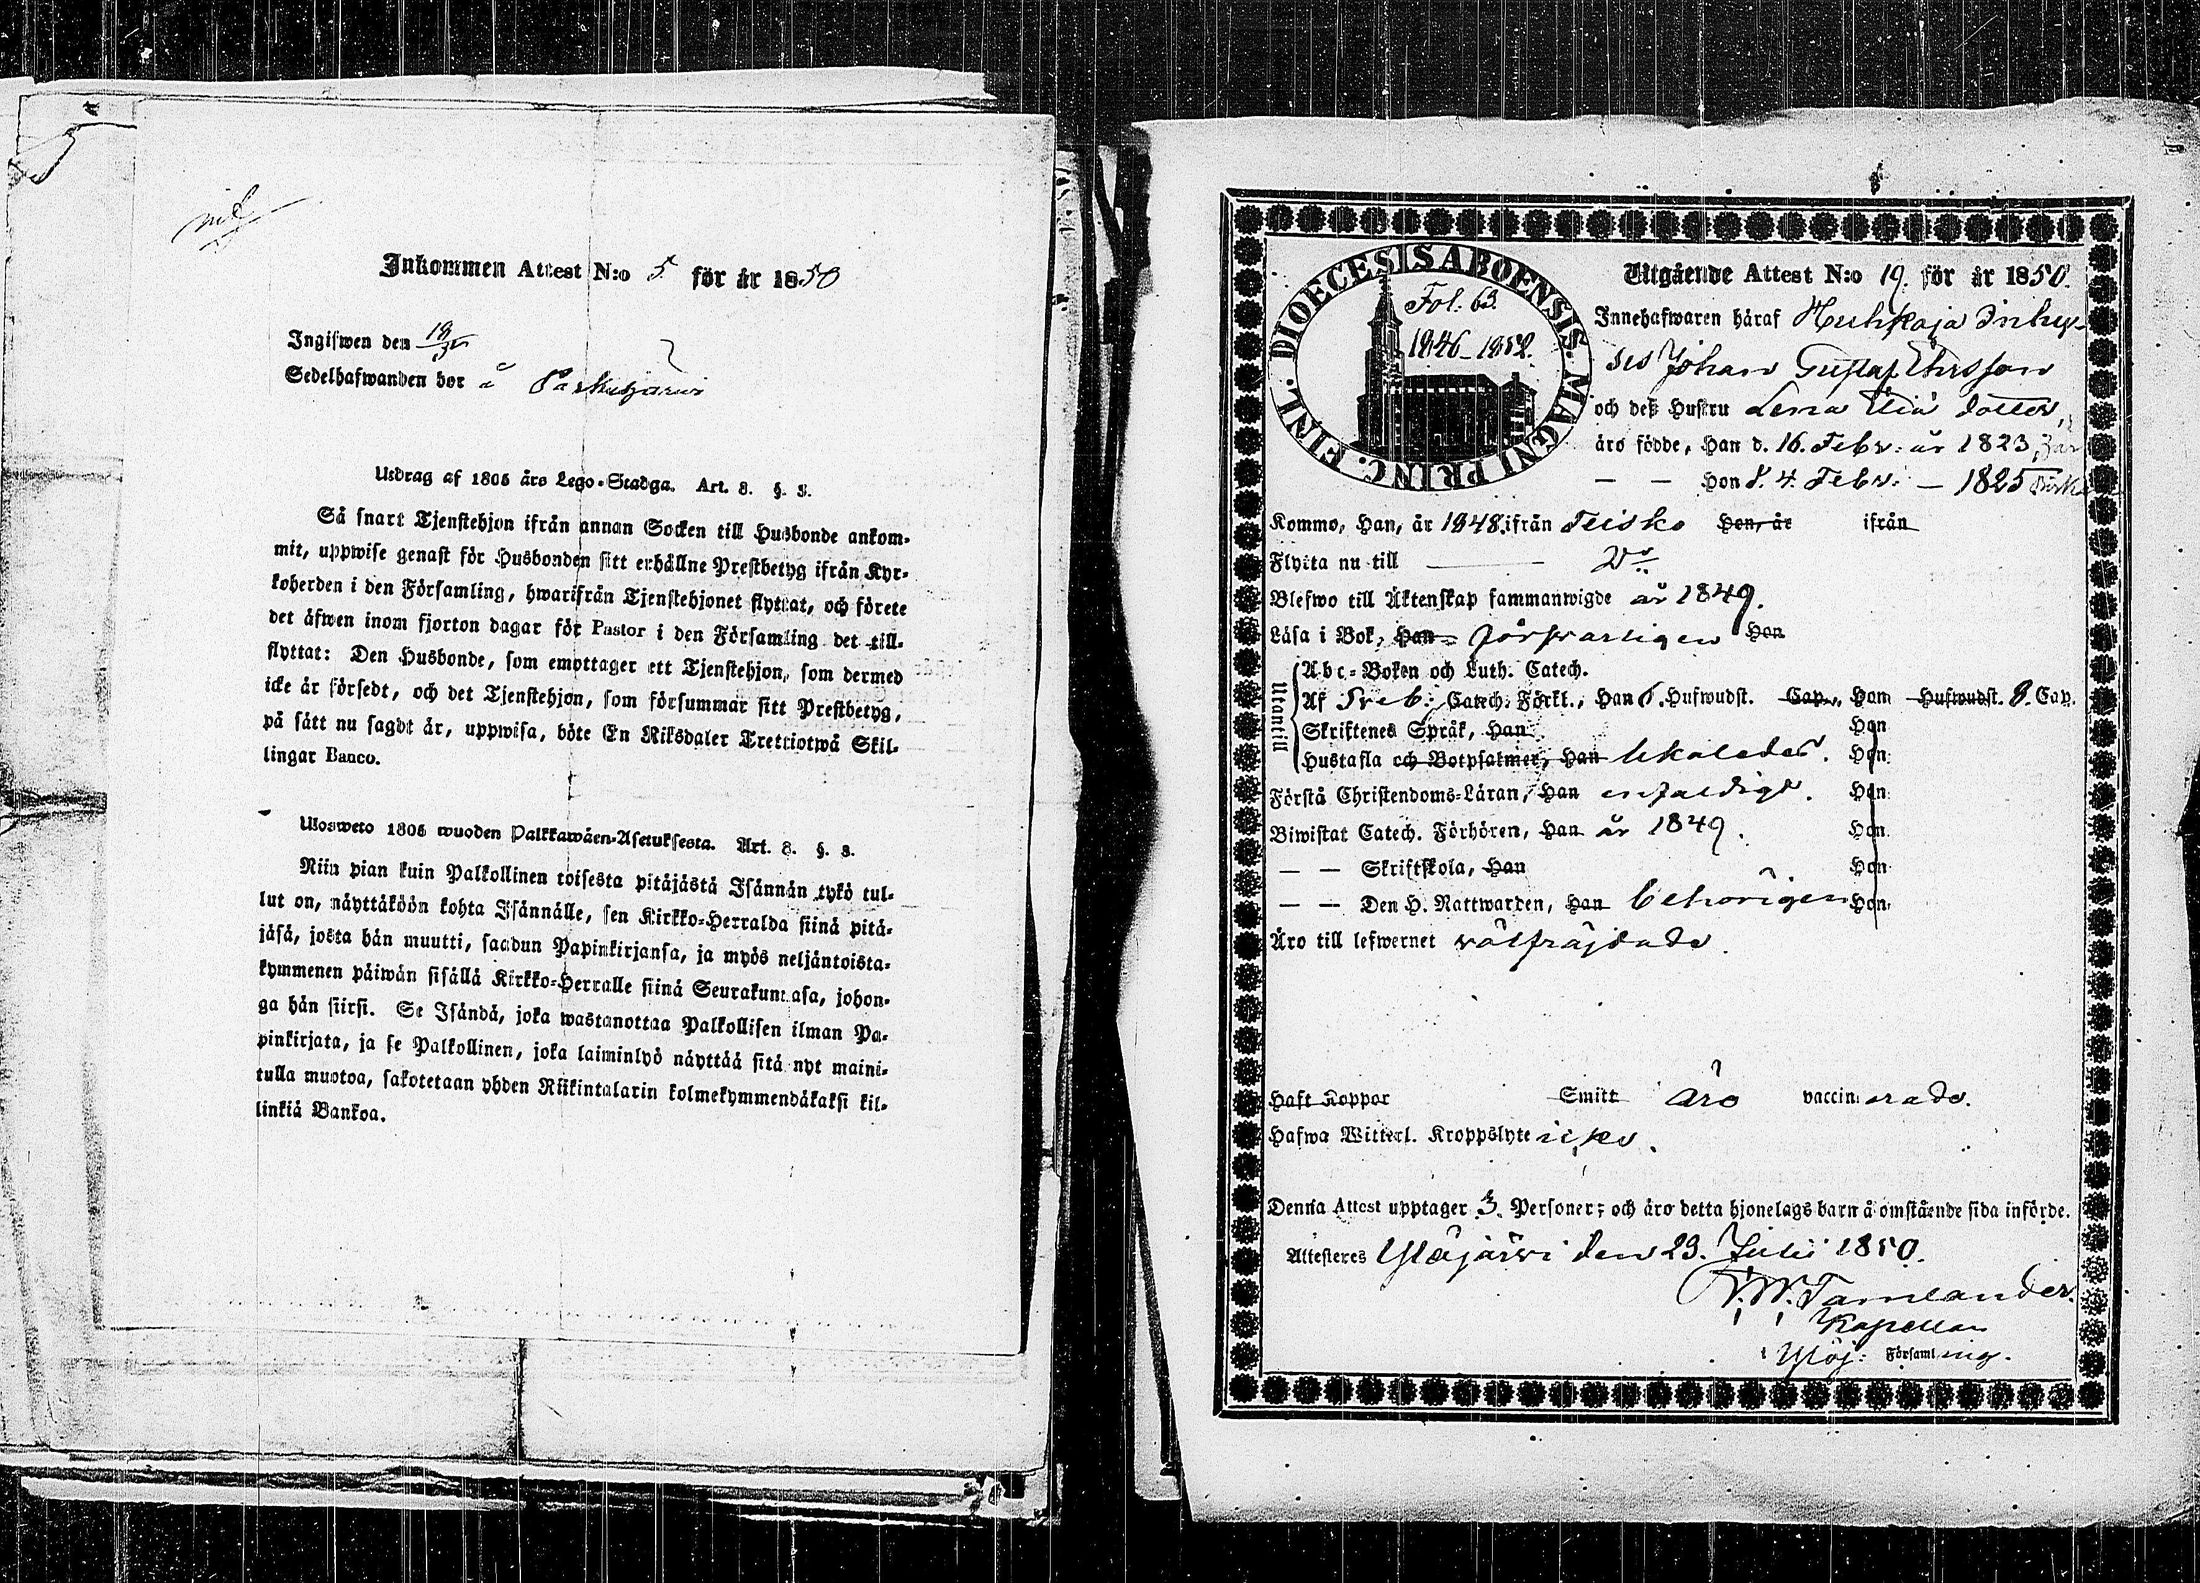 Inkommen Attest N:o 5 för år 1850
Ingifwen den 19/5
Sedelhafwanden bor å Parkusjärwi
Utdrag af 1805 års Lego-Stadga. Art. 8. §. 3.
Så snart Tjenstehjon ifrån annan Socken till Husbonde ankom-
mit, uppwise genast för Husbonden sitt erhållne Prestbetyg ifrån Kyr-
koherden i den Församling, hwarifrån Tjenstehjonet flyttat, och förete
det äfwen inom fjorton dagar för Pastor i den Församling det till-
flyttat: Den Husbonde, som emottager ett Tjenstehjon, som dermed
icke är försedt, och det Tjenstehjon, som försummar sitt Prestbetyg,
på sätt nu sagdt är, uppwisa, böte En Riksdaler Trettiotwå Skil-
lingar Banco.
Ulosweto 1805 wuoden Palkkawäen-Asetuksesta. Art. 8. §. 3.
Niin pian kuin Palkollinen toisesta pitäjästä Isännän tykö tul-
lut on, näyttäköön kohta Isännälle, sen Kirkko-Herralda siinä pitä-
jäsä, josta hän muutti, saadun Papinkirjansa, ja myös neljäntoista-
kymmenen päiwän sisällä Kirkko-Herralle siinä Seurakunnasa, johon-
ga hän siirsi. Se Isändä, joka wastanottaa Palkollisen ilman Pa-
pinkirjata, ja se Palkollinen, joka laiminlyö näyttää sitä nyt maini-
tulla muotoa, sakotetaan yhden Riikintalarin kolmekymmendäkaksi kil-
linkiä Bankoa.
DIOECESIS ABOENSIS. MAGNI PRINC. FINL.
Fol. 63.
1846-1852.
Utgående Attest N:o 19. för år 1850.
Innehafwaren häraf Huhkaja Inhys-
ses Johan Gustaf Ehrsson
och deß Hustru Lena Elia dotter,
äro födde, Han d. 16. Febr: år 1823,
— — Hon d. 4. Febr: — 1825
Kommo, Han, år 1848. ifrån Teisko Hon, år ifrån
Flytta nu till — Do
Blefwo till Äktenskap sammanwigde år 1849.
Läsa i Bok, Han förswarligen Hon
Utantill
Abc-Boken och Luth. Catech.
Af Sveb: Catech. Förkl., Han 6. Hufwudst. Cap., Hon Hufwudst. 8. Cap.
Skriftenes Språk, Han Hon
Hustafla och Botpsalmer, Han Hon
Förstå Christendoms-Läran, Han enfaldigt. Hon
Biwistat Catech. Förhören, Han år 1849. Hon
— — Skriftskola, Han Hon
— — Den H. Nattwarden, Han behörigen Hon
Äro till lefwernet wälfräjdade.
Haft Koppor Smitt äro vaccinerade.
Hafwa Witterl. Kroppslyte icke.
Denna Attest upptager 3. Personer; och äro detta hjonelags barn å omstående sida införde.
Attesteres Ylöjärwi den 23. Julii 1850.
W. Tamlander.
Kapellan
i Ylöj: Församling.